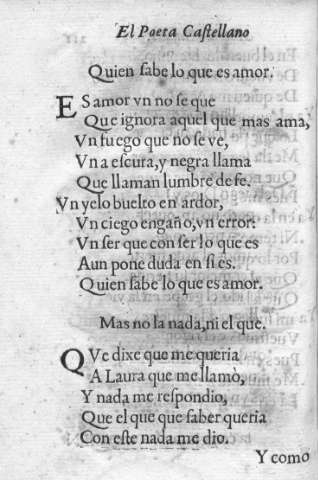 El Poeta Caſtellano
Quien ſabe lo que es amor.
ES amor vn no ſe que
Que ignora aquel que mas ama,
Vn fuego que no ſe ve,
Vna eſcura, y negra llama
Que llaman lumbre de fe.
Vn yelo buelto en ardor,
Vn ciego engaño, vn error.
Vn ſer que con ſer lo que es
Aun pone duda en ſi es.
Quien ſabe lo que es amor.
Mas no la nada, ni el que.
QVe dixe que me queria
A Laura que me llamò,
Y nada me reſpondio,
Que el que que ſaber queria
Con eſte nada me dio.
Y como